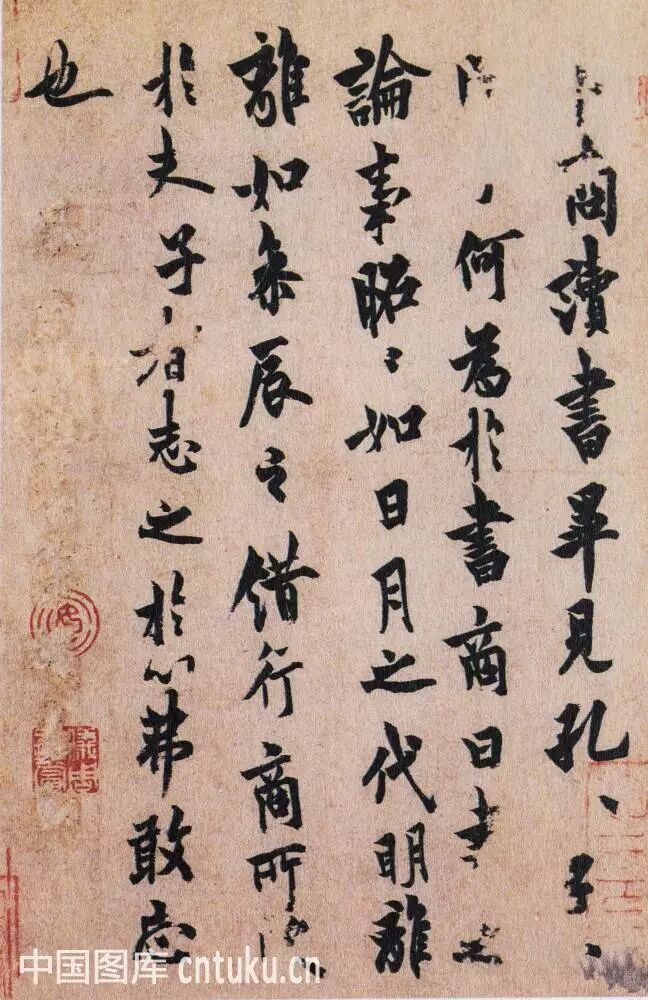 卜商問讀書畢見孔、子、
何為於書商曰書
論事昭〻如日月之代明離
離如參辰之錯行商所
於夫子者志之於心弗敢忘
也
中国图库 cntuku.cn